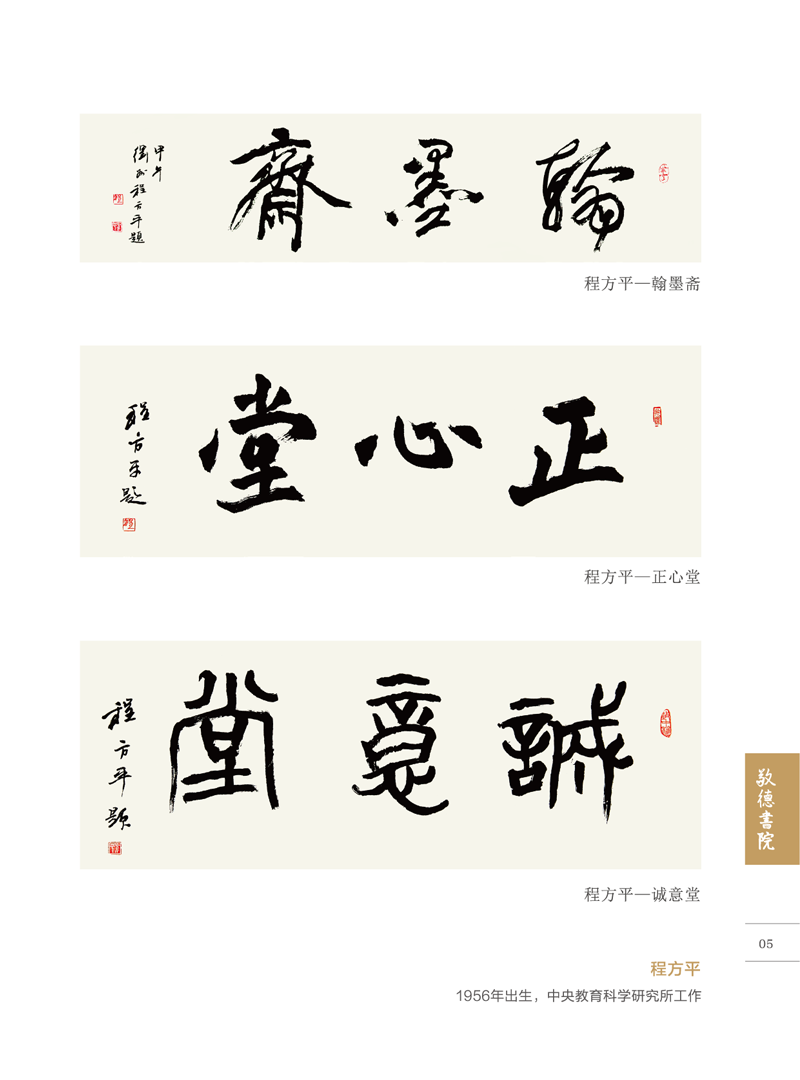 翰墨齋
甲午
程方平題
程方平—翰墨斋
正心堂
程方平题
程方平—正心堂
誠意堂
程方平题
程方平—诚意堂
敬德書院
05
程方平
1956年出生，中央教育科学研究所工作